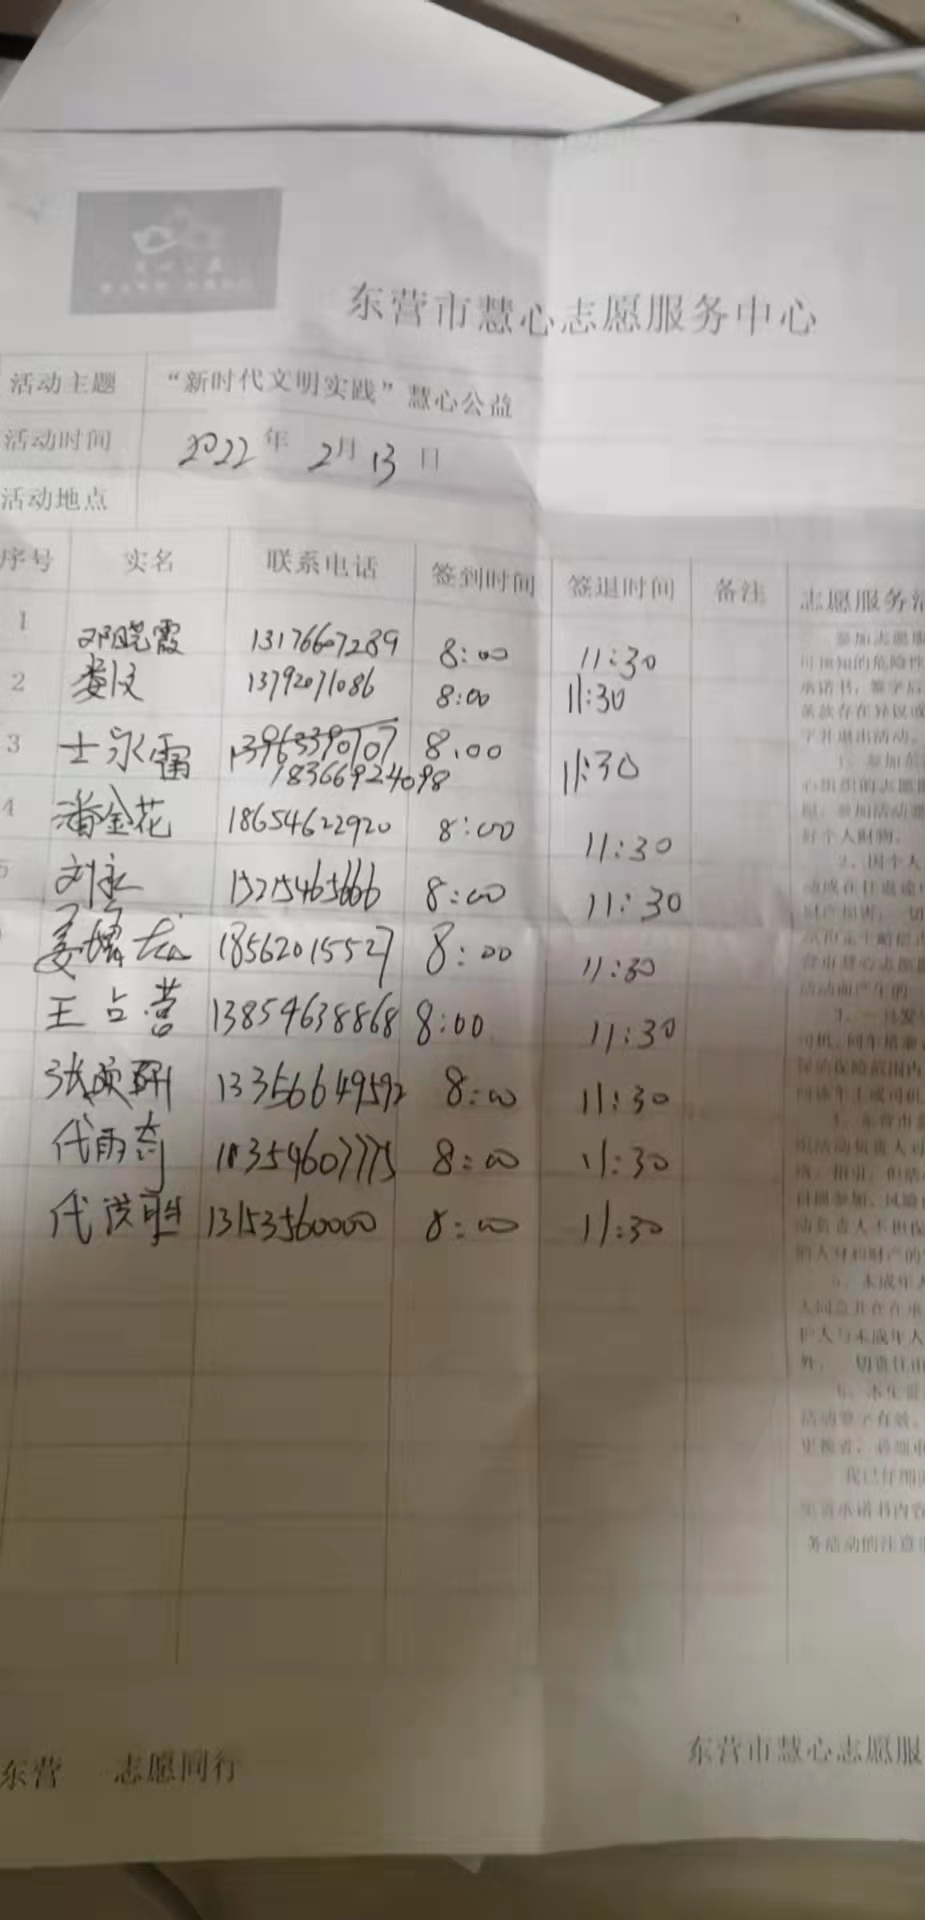 东营市慧心志愿服务中心
活动主题 “新时代文明实践”慧心公益
活动时间 2022年2月13日
活动地点
序号 实名 联系电话 签到时间 签退时间 备注 志愿服务活
1 邓晓霞 13176607289 8:00 11:30
2 娄文 13792071086 8:00 11:30
3 士永雷 13963390707 8:00 11:30
18366924098
4 潘金花 18654622920 8:00 11:30
5 刘永 15215465666 8:00 11:30
姜 18562015527 8:00 11:30
王占营 13854638868 8:00 11:30
张 研 13356649592 8:00 11:30
代雨奇 18354607775 8:00 11:30
代洪胜 13153560000 8:00 11:30
参加志愿服
可预知的危险性
承诺书，签字后
条款存在异议或
字并退出活动。
1、参加东
心组织的志愿服
愿，参加活动
好个人财物。
2、因个人
动或在往返途
财产损害，一切
营市慧心志愿服
活动而产生的一
司机，同车搭乘
保的保险范围内
同该车主或司机
动负责人不担保
的人身和财产的
5、未成年人
人同意并在在承
护人与未成年人
外，一切责任由
6、本免责
活动签字有效，
我已仔细阅
免责承诺书内容
务活动的注意事
东营 志愿同行
东营市慧心志愿服